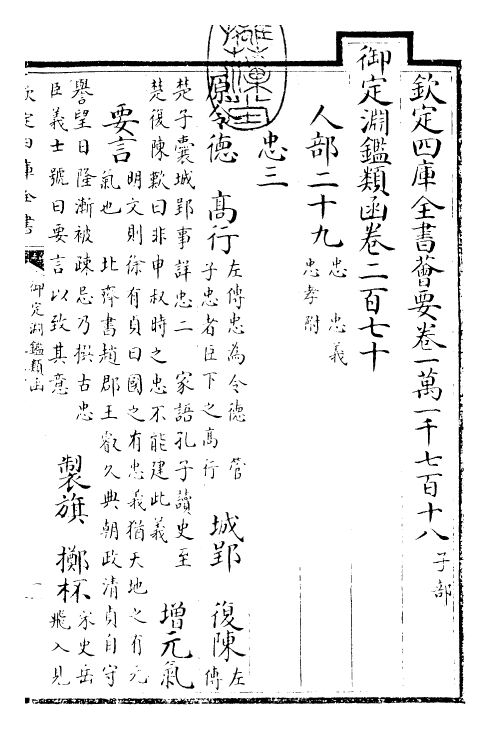 欽定四庫全書薈要卷一萬一千七百十八 子部
御定淵鑑類函卷二百七十
人部二十九 忠 忠義
忠孝附
忠三
原令德 高行 左傳忠為令德 管
子忠者臣下之高行 城郢 復陳 左
傳
楚子囊城郢事詳忠二 家語孔子讀史至
楚復陳歎曰非申叔時之忠不能建此義 增元氣
明文則徐有貞曰國之有忠義猶天地之有元
氣也 要言 北齊書趙郡王叡久典朝政清貞自守
譽望日隆漸被疎忌乃撰古忠
臣義士號曰要言以致其意 製旗 擲杯 宋史岳
飛入見
欽定四庫全書
御定淵鑑類函